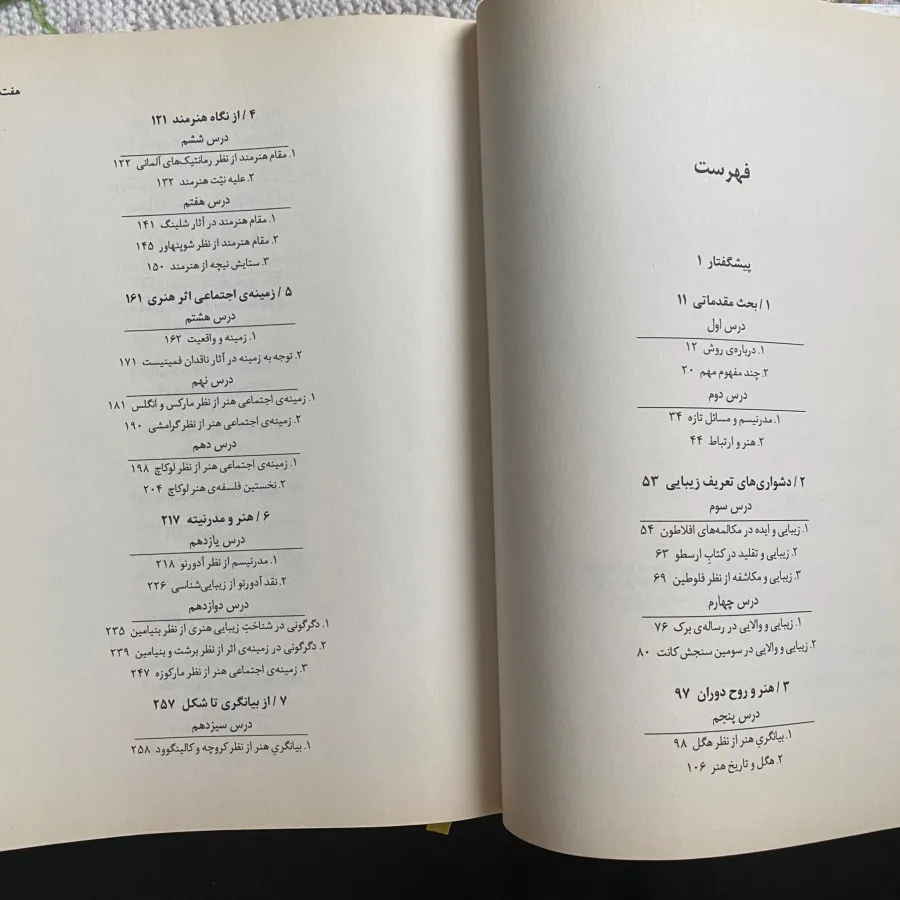 فهرست
پیشگفتار ۱
۱ / بحث مقدماتی ۱۱
درس اول
۱. درباره‌ی روش ۱۲
۲. چند مفهوم مهم ۲۰
درس دوم
۱. مدرنیسم و مسائل تازه ۳۴
۲. هنر و ارتباط ۴۴
۲ / دشواری‌های تعریف زیبایی ۵۳
درس سوم
۱. زیبایی و ایده در مکالمه‌های افلاطون ۵۴
۲. زیبایی و تقلید در کتاب ارسطو ۶۳
۳. زیبایی و مکاشفه از نظر فلوطین ۶۹
درس چهارم
۱. زیبایی و والایی در رساله‌ی برک ۷۶
۲. زیبایی و والایی در سومین سنجش کانت ۸۰
۳ / هنر و روح دوران ۹۷
درس پنجم
۱. بیانگریِ هنر از نظر هگل ۹۸
۲. هگل و تاریخ هنر ۱۰۶
هفت
۴ / از نگاه هنرمند ۱۲۱
درس ششم
۱. مقام هنرمند از نظر رمانتیک‌های آلمانی ۱۲۲
۲. علیه نیّت هنرمند ۱۳۲
درس هفتم
۱. مقام هنرمند در آثار شلینگ ۱۴۱
۲. مقام هنرمند از نظر شوپنهاور ۱۴۵
۳. ستایش نیچه از هنرمند ۱۵۰
۵ / زمینه‌ی اجتماعی اثر هنری ۱۶۱
درس هشتم
۱. زمینه و واقعیت ۱۶۲
۲. توجه به زمینه در آثار ناقدان فمینیست ۱۷۱
درس نهم
۱. زمینه‌ی اجتماعی هنر از نظر مارکس و انگلس ۱۸۱
۲. زمینه‌ی اجتماعی هنر از نظر گرامشی ۱۹۰
درس دهم
۱. زمینه‌ی اجتماعی هنر از نظر لوکاچ ۱۹۸
۲. نخستین فلسفه‌ی هنر لوکاچ ۲۰۴
۶ / هنر و مدرنیته ۲۱۷
درس یازدهم
۱. مدرنیسم از نظر آدورنو ۲۱۸
۲. نقد آدورنو از زیبایی‌شناسی ۲۲۶
درس دوازدهم
۱. دگرگونی در شناختِ زیبایی هنری از نظر بنیامین ۲۳۵
۲. دگرگونی در زمینه‌ی اثر از نظر برشت و بنیامین ۲۳۹
۳. زمینه‌ی اجتماعی هنر از نظر مارکوزه ۲۴۷
۷ / از بیانگری تا شکل ۲۵۷
درس سیزدهم
۱. بیانگریِ هنر از نظر کروچه و کالینگوود ۲۵۸